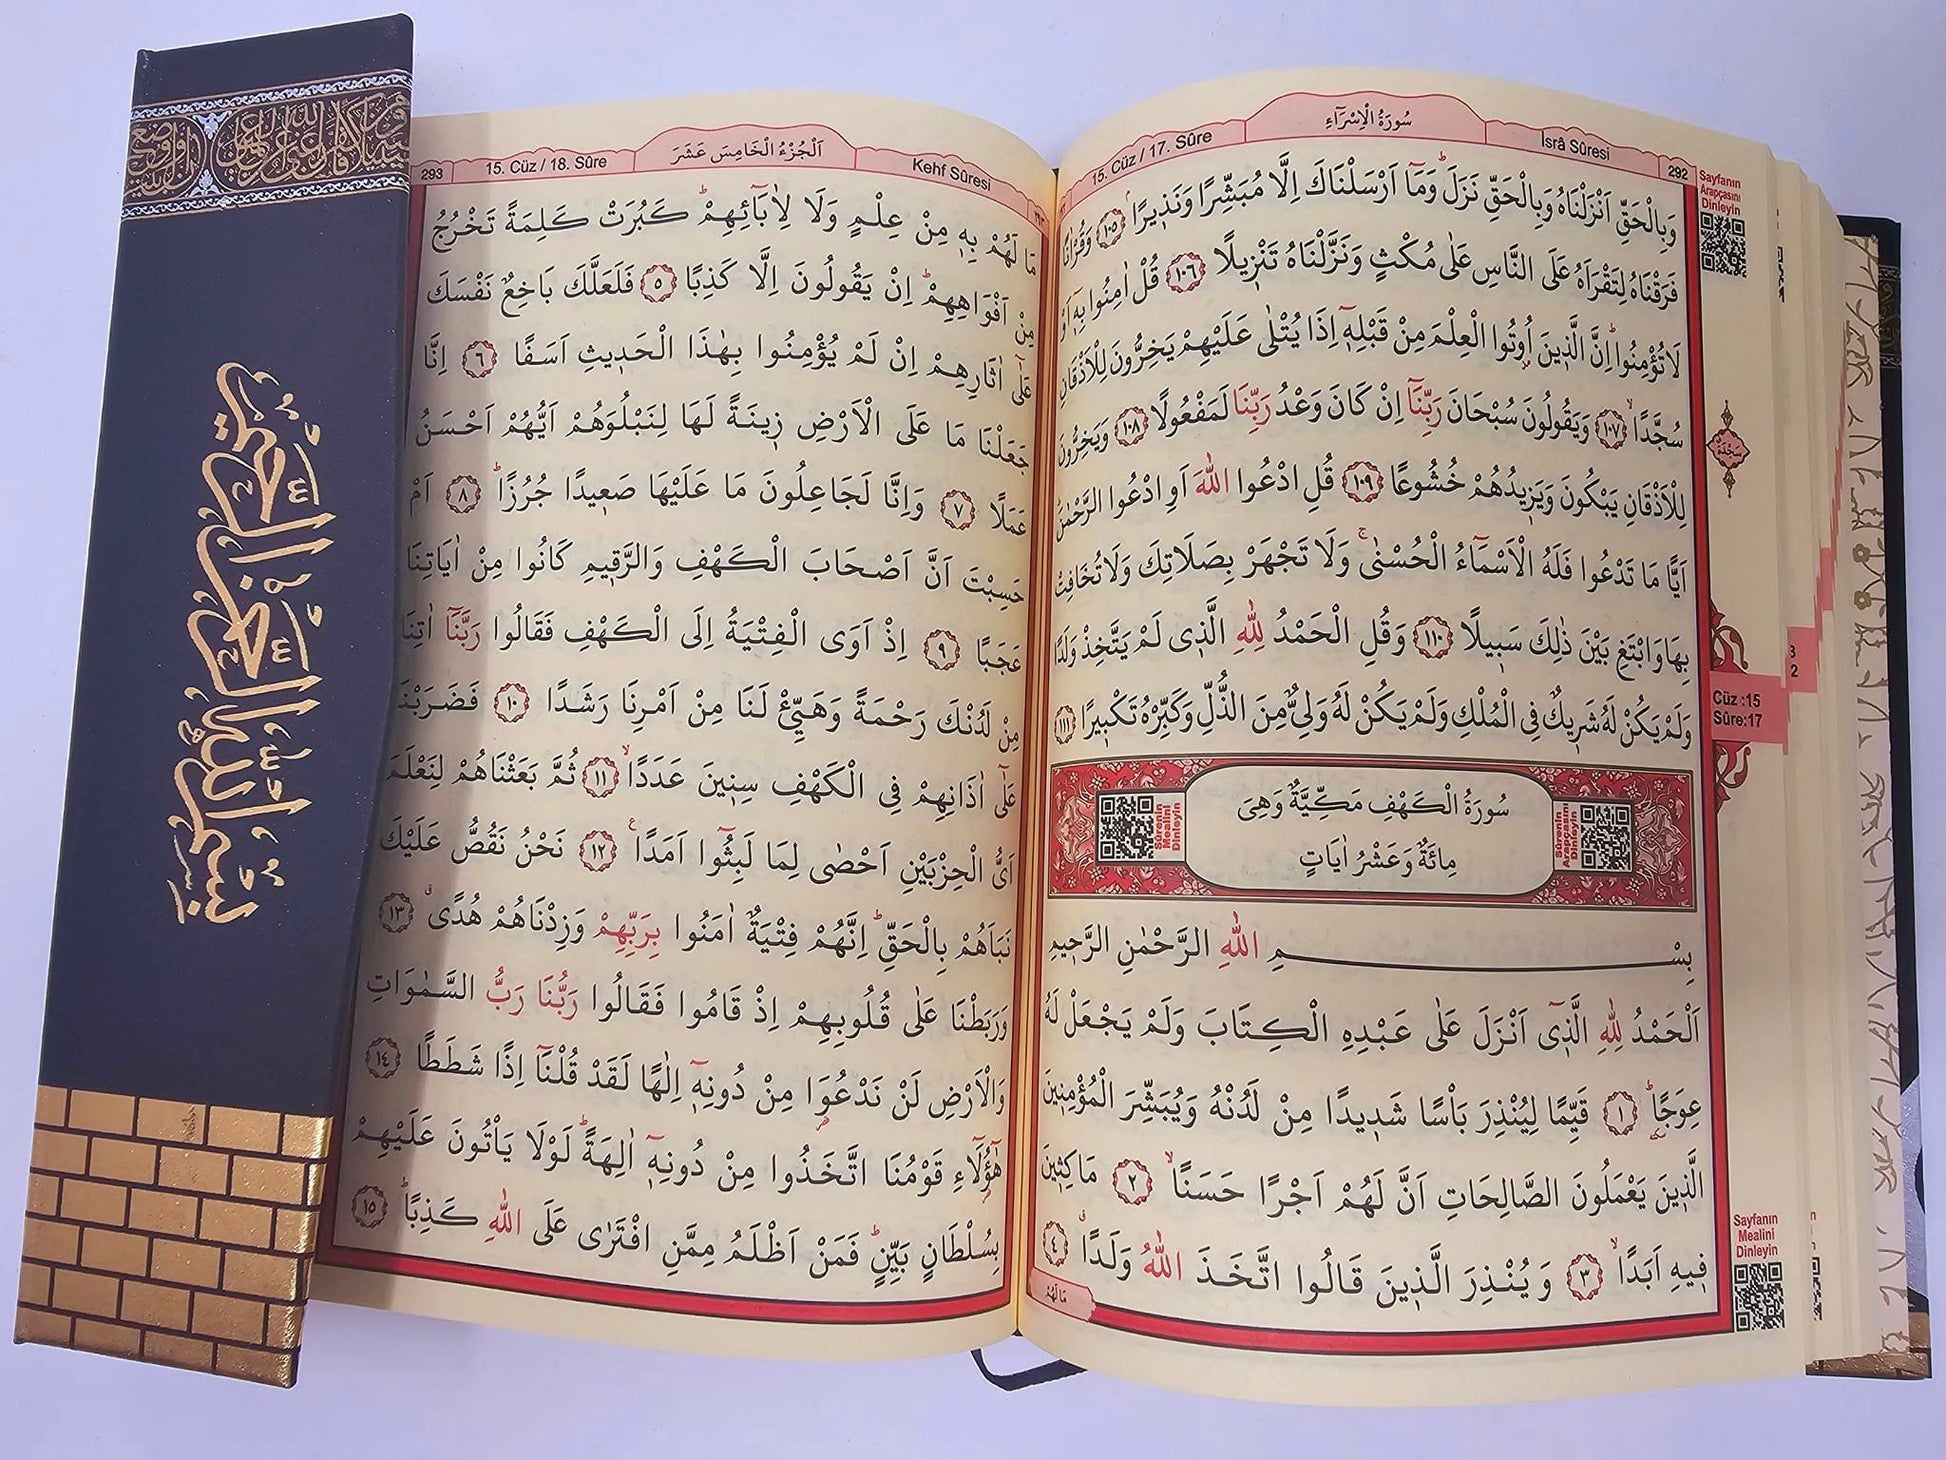 292
İsrâ Sûresi
سُورَةُ الْاِسْرَٓاءِ
15. Cüz / 17. Sûre
Sayfanın
Arapçasını
Dinleyin
وَبِالْحَقِّ اَنْزَلْنَاهُ وَبِالْحَقِّ نَزَلَۜ وَمَٓا اَرْسَلْنَاكَ اِلَّا مُبَشِّرًا وَنَذِيرًاۢ ﴿١٠٥﴾ وَقُرْاٰنًا
فَرَقْنَاهُ لِتَقْرَاَهُ عَلَى النَّاسِ عَلٰى مُكْثٍ وَنَزَّلْنَاهُ تَنْزِيلًا ﴿١٠٦﴾ قُلْ اٰمِنُوا بِهِٓ اَوْ
لَا تُؤْمِنُواۜ اِنَّ الَّذِينَ اُو۫تُوا الْعِلْمَ مِنْ قَبْلِهِٓ اِذَا يُتْلٰى عَلَيْهِمْ يَخِرُّونَ لِلْاَذْقَانِ
سُجَّدًاۙ ﴿١٠٧﴾ وَيَقُولُونَ سُبْحَانَ رَبِّنَٓا اِنْ كَانَ وَعْدُ رَبِّنَا لَمَفْعُولًا ﴿١٠٨﴾ وَيَخِرُّونَ
لِلْاَذْقَانِ يَبْكُونَ وَيَزِيدُهُمْ خُشُوعًا ﴿١٠٩﴾ قُلِ ادْعُوا اللّٰهَ اَوِ ادْعُوا الرَّحْمٰنَۜ
اَيًّا مَا تَدْعُوا فَلَهُ الْاَسْمَٓاءُ الْحُسْنٰىۚ وَلَا تَجْهَرْ بِصَلَاتِكَ وَلَا تُخَافِتْ
بِهَا وَابْتَغِ بَيْنَ ذٰلِكَ سَبِيلًا ﴿١١٠﴾ وَقُلِ الْحَمْدُ لِلّٰهِ الَّذِي لَمْ يَتَّخِذْ وَلَدًا
وَلَمْ يَكُنْ لَهُ شَرِيكٌ فِي الْمُلْكِ وَلَمْ يَكُنْ لَهُ وَلِيٌّ مِنَ الذُّلِّ وَكَبِّرْهُ تَكْبِيرًا ﴿١١١﴾
سَجْدَة
Cüz :15
Sûre:17
3
2
سُورَةُ الْكَهْفِ مَكِّيَّةٌ وَهِيَ
مِائَةٌ وَعَشْرُ اٰيَاتٍ
Sûrenin
Arapçasını
Dinleyin
Sûrenin
Mealini
Dinleyin
بِسْمِ اللّٰهِ الرَّحْمٰنِ الرَّحِيمِ
اَلْحَمْدُ لِلّٰهِ الَّذِٓي اَنْزَلَ عَلٰى عَبْدِهِ الْكِتَابَ وَلَمْ يَجْعَلْ لَهُ
عِوَجًاۜ ﴿١﴾ قَيِّمًا لِيُنْذِرَ بَاْسًا شَدِيدًا مِنْ لَدُنْهُ وَيُبَشِّرَ الْمُؤْمِنِينَ
الَّذِينَ يَعْمَلُونَ الصَّالِحَاتِ اَنَّ لَهُمْ اَجْرًا حَسَنًاۙ ﴿٢﴾ مَاكِثِينَ
فِيهِ اَبَدًاۙ ﴿٣﴾ وَيُنْذِرَ الَّذِينَ قَالُوا اتَّخَذَ اللّٰهُ وَلَدًاۗ ﴿٤﴾
مَا لَهُمْ
Sayfanın
Mealini
Dinleyin
Kehf Sûresi
اَلْجُزْءُ الْخَامِسَ عَشَرَ
15. Cüz / 18. Sûre
293
مَا لَهُمْ بِهِ مِنْ عِلْمٍ وَلَا لِاٰبَٓائِهِمْۜ كَبُرَتْ كَلِمَةً تَخْرُجُ
مِنْ اَفْوَاهِهِمْۜ اِنْ يَقُولُونَ اِلَّا كَذِبًا ﴿٥﴾ فَلَعَلَّكَ بَاخِعٌ نَفْسَكَ
عَلٰٓى اٰثَارِهِمْ اِنْ لَمْ يُؤْمِنُوا بِهٰذَا الْحَدِيثِ اَسَفًا ﴿٦﴾ اِنَّا
جَعَلْنَا مَا عَلَى الْاَرْضِ زِينَةً لَهَا لِنَبْلُوَهُمْ اَيُّهُمْ اَحْسَنُ
عَمَلًا ﴿٧﴾ وَاِنَّا لَجَاعِلُونَ مَا عَلَيْهَا صَعِيدًا جُرُزًاۜ ﴿٨﴾ اَمْ
حَسِبْتَ اَنَّ اَصْحَابَ الْكَهْفِ وَالرَّقِيمِ كَانُوا مِنْ اٰيَاتِنَا
عَجَبًا ﴿٩﴾ اِذْ اَوَى الْفِتْيَةُ اِلَى الْكَهْفِ فَقَالُوا رَبَّنَٓا اٰتِنَا
مِنْ لَدُنْكَ رَحْمَةً وَهَيِّئْ لَنَا مِنْ اَمْرِنَا رَشَدًا ﴿١٠﴾ فَضَرَبْنَا
عَلٰٓى اٰذَانِهِمْ فِي الْكَهْفِ سِنِينَ عَدَدًاۙ ﴿١١﴾ ثُمَّ بَعَثْنَاهُمْ لِنَعْلَمَ
اَيُّ الْحِزْبَيْنِ اَحْصٰى لِمَا لَبِثُٓوا اَمَدًا۟ ﴿١٢﴾ نَحْنُ نَقُصُّ عَلَيْكَ
نَبَاَهُمْ بِالْحَقِّۜ اِنَّهُمْ فِتْيَةٌ اٰمَنُوا بِرَبِّهِمْ وَزِدْنَاهُمْ هُدًىۗ ﴿١٣﴾
وَرَبَطْنَا عَلٰى قُلُوبِهِمْ اِذْ قَامُوا فَقَالُوا رَبُّنَا رَبُّ السَّمٰوَاتِ
وَالْاَرْضِ لَنْ نَدْعُوَ۬ا مِنْ دُونِهِٓ اِلٰهًا لَقَدْ قُلْنَٓا اِذًا شَطَطًا ﴿١٤﴾
هٰٓؤُ۬لَٓاءِ قَوْمُنَا اتَّخَذُوا مِنْ دُونِهِٓ اٰلِهَةًۜ لَوْلَا يَاْتُونَ عَلَيْهِمْ
بِسُلْطَانٍ بَيِّنٍۜ فَمَنْ اَظْلَمُ مِمَّنِ افْتَرٰى عَلَى اللّٰهِ كَذِبًاۜ ﴿١٥﴾
بِسْمِ اللّٰهِ الرَّحْمٰنِ الرَّحِيمِ